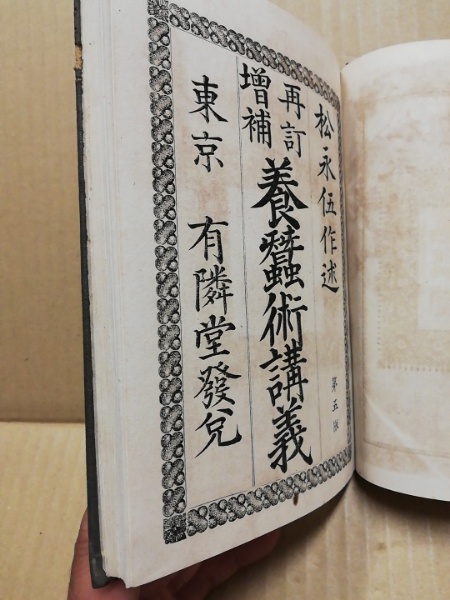 松永伍作述
再訂
增補
養蠶術講義
第五版
東京 有隣堂發兌